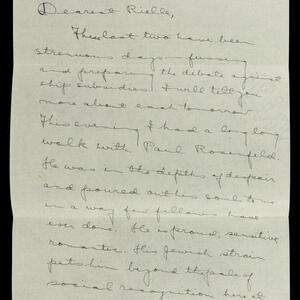 Dearest Rielle,
These last two have been
strenuous days — fussing
and preparing the debate against
ship subsidies. I will tell you
more about east tomorrow
This evening I had a long long
walk with Paul Rosenfeld.
He was in the depths of despair
and poured out his soul to me
in a way few fellows have
ever done. He is proud, sensitive
romantic. His Jewish strain
puts him beyond the pale of
social recognition here at